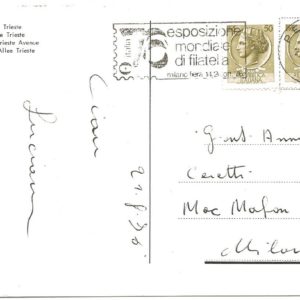 Trieste
le Trieste
Trieste Avenue
Allee Trieste
italia 76
esposizione
mondiale
di filatelia
milano fiera 14/24 ott.
50
Ciao
Luciana
Gent. Anna
Ceretti
Mac Mahon
Milano